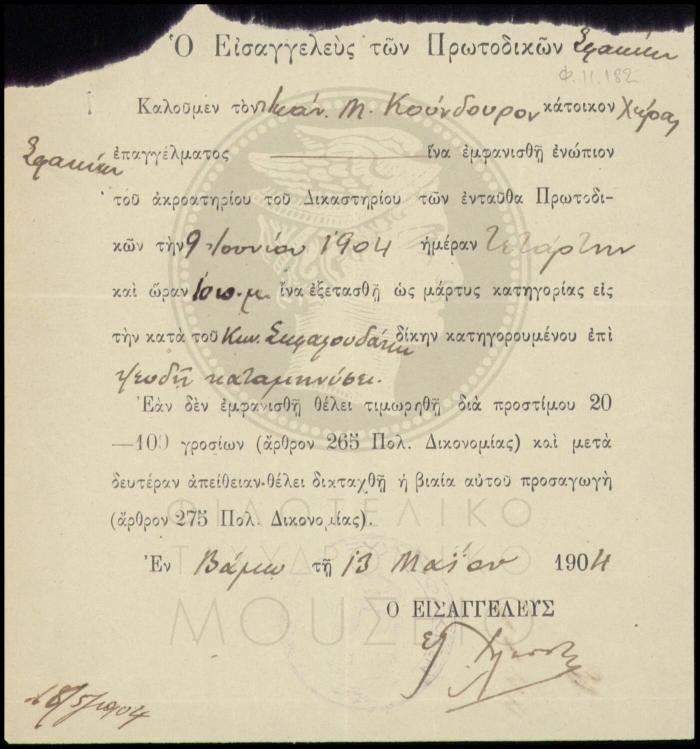 Ὁ Εἰσαγγελεὺς τῶν Πρωτοδικῶν Σφακίων
Φ.11.182
Καλοῦμεν τὸν Ἰωάν. Μ. Κούνδουρον κάτοικον Χώρας
Σφακίων ἐπαγγέλματος ἵνα ἐμφανισθῇ ἐνώπιον
τοῦ ἀκροατηρίου τοῦ Δικαστηρίου τῶν ἐνταῦθα Πρωτοδι-
κῶν τὴν 9 Ἰουνίου 1904 ἡμέραν Τετάρτην
καὶ ὥραν π.μ. ἵνα ἐξετασθῇ ὡς μάρτυς κατηγορίας εἰς
τὴν κατὰ τοῦ δίκην κατηγορουμένου ἐπὶ
ψευδῆ καταμηνύσει.
Ἐὰν δὲν ἐμφανισθῇ θέλει τιμωρηθῇ διὰ προστίμου 20
—100 γροσίων (ἄρθρον 265 Πολ. Δικονομίας) καὶ μετὰ
δευτέραν ἀπείθειαν θέλει διαταχθῆ ἡ βιαία αὐτοῦ προσαγωγὴ
(ἄρθρον 275 Πολ. Δικονομίας).
Ἐν Βάμῳ τῇ 13 Μαΐου 1904
Ο ΕΙΣΑΓΓΕΛΕΥΣ
ΦΙΛΟΤΕΛΙΚΟ
ΤΑΧΥΔΡΟΜΙΚΟ
ΜΟΥΣΕΙΟ